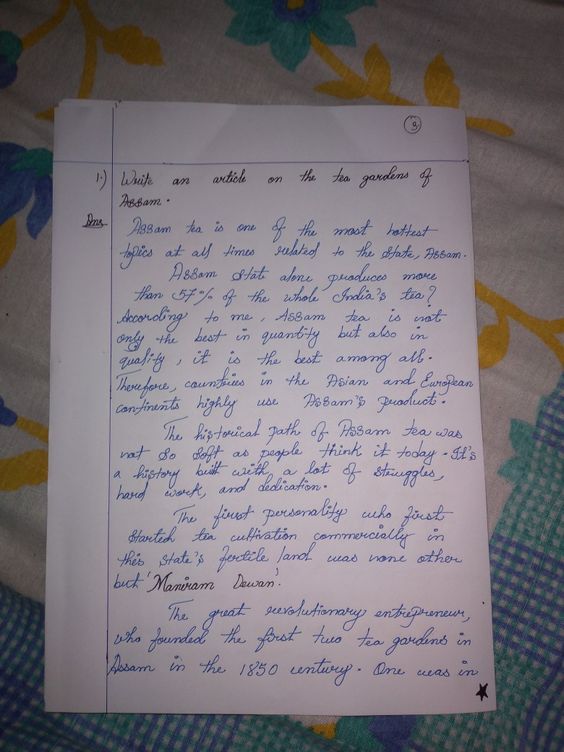 3
1.) Write an article on the tea gardens of
Assam.
Ans Assam tea is one of the most hottest
topics at all times related to the state, Assam.
Assam state alone produces more
than 57% of the whole India's tea?
According to me, Assam tea is not
only the best in quantity but also in
quality, it is the best among all.
Therefore, countries in the Asian and European
continents highly use Assam's product.
The historical path of Assam tea was
not so soft as people think it today. It's
a history built with, a lot of struggles,
hard work, and dedication.
The first personality who first
started tea cultivation commercially in
this state's fertile land was none other
but 'Maniram Dewan.'
The great revolutionary entrepreneur,
who founded the first two tea gardens in
Assam in the 1850 century. One was in